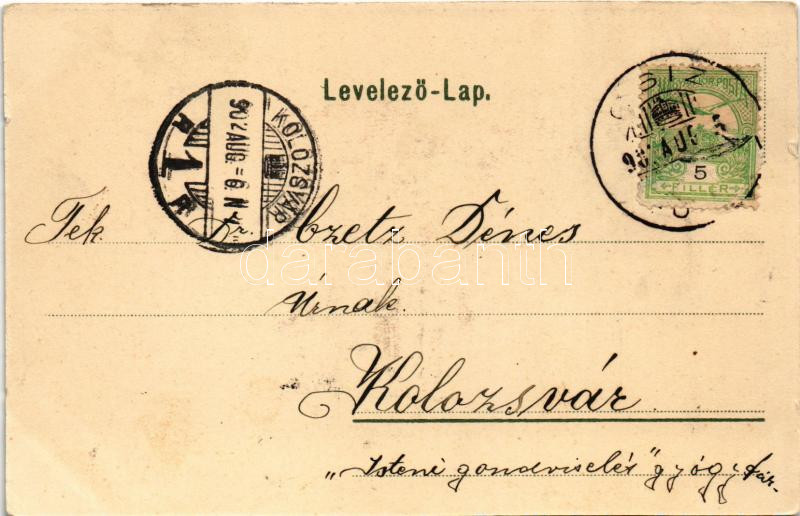 Levelező-Lap.
KOLOZSVÁR
902 AUG. 6. N
1
AUG
5
FILLÉR
Tek. Dr. Czetz Dénes
Úrnak.
Kolozsvár.
„Isteni gondviselés" gyógy tár-
darabanth